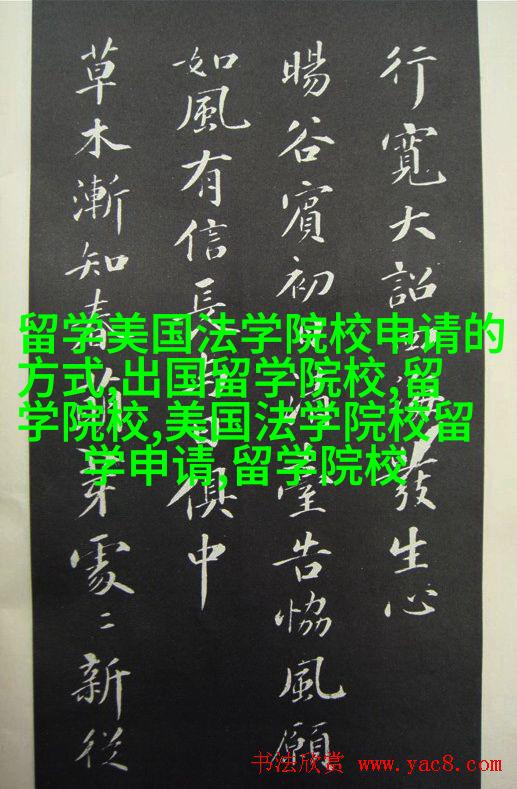 行寬大詔四海發生心
暘谷賓初日清臺告協風願
如風有信長與日俱中
草木漸知春萌芽處〻新從
留学美国法学院校申请的
方式,出国留学院校,留
学院校,美国法学院校留
学申请,留学院校
书法欣赏 www.yac8.com